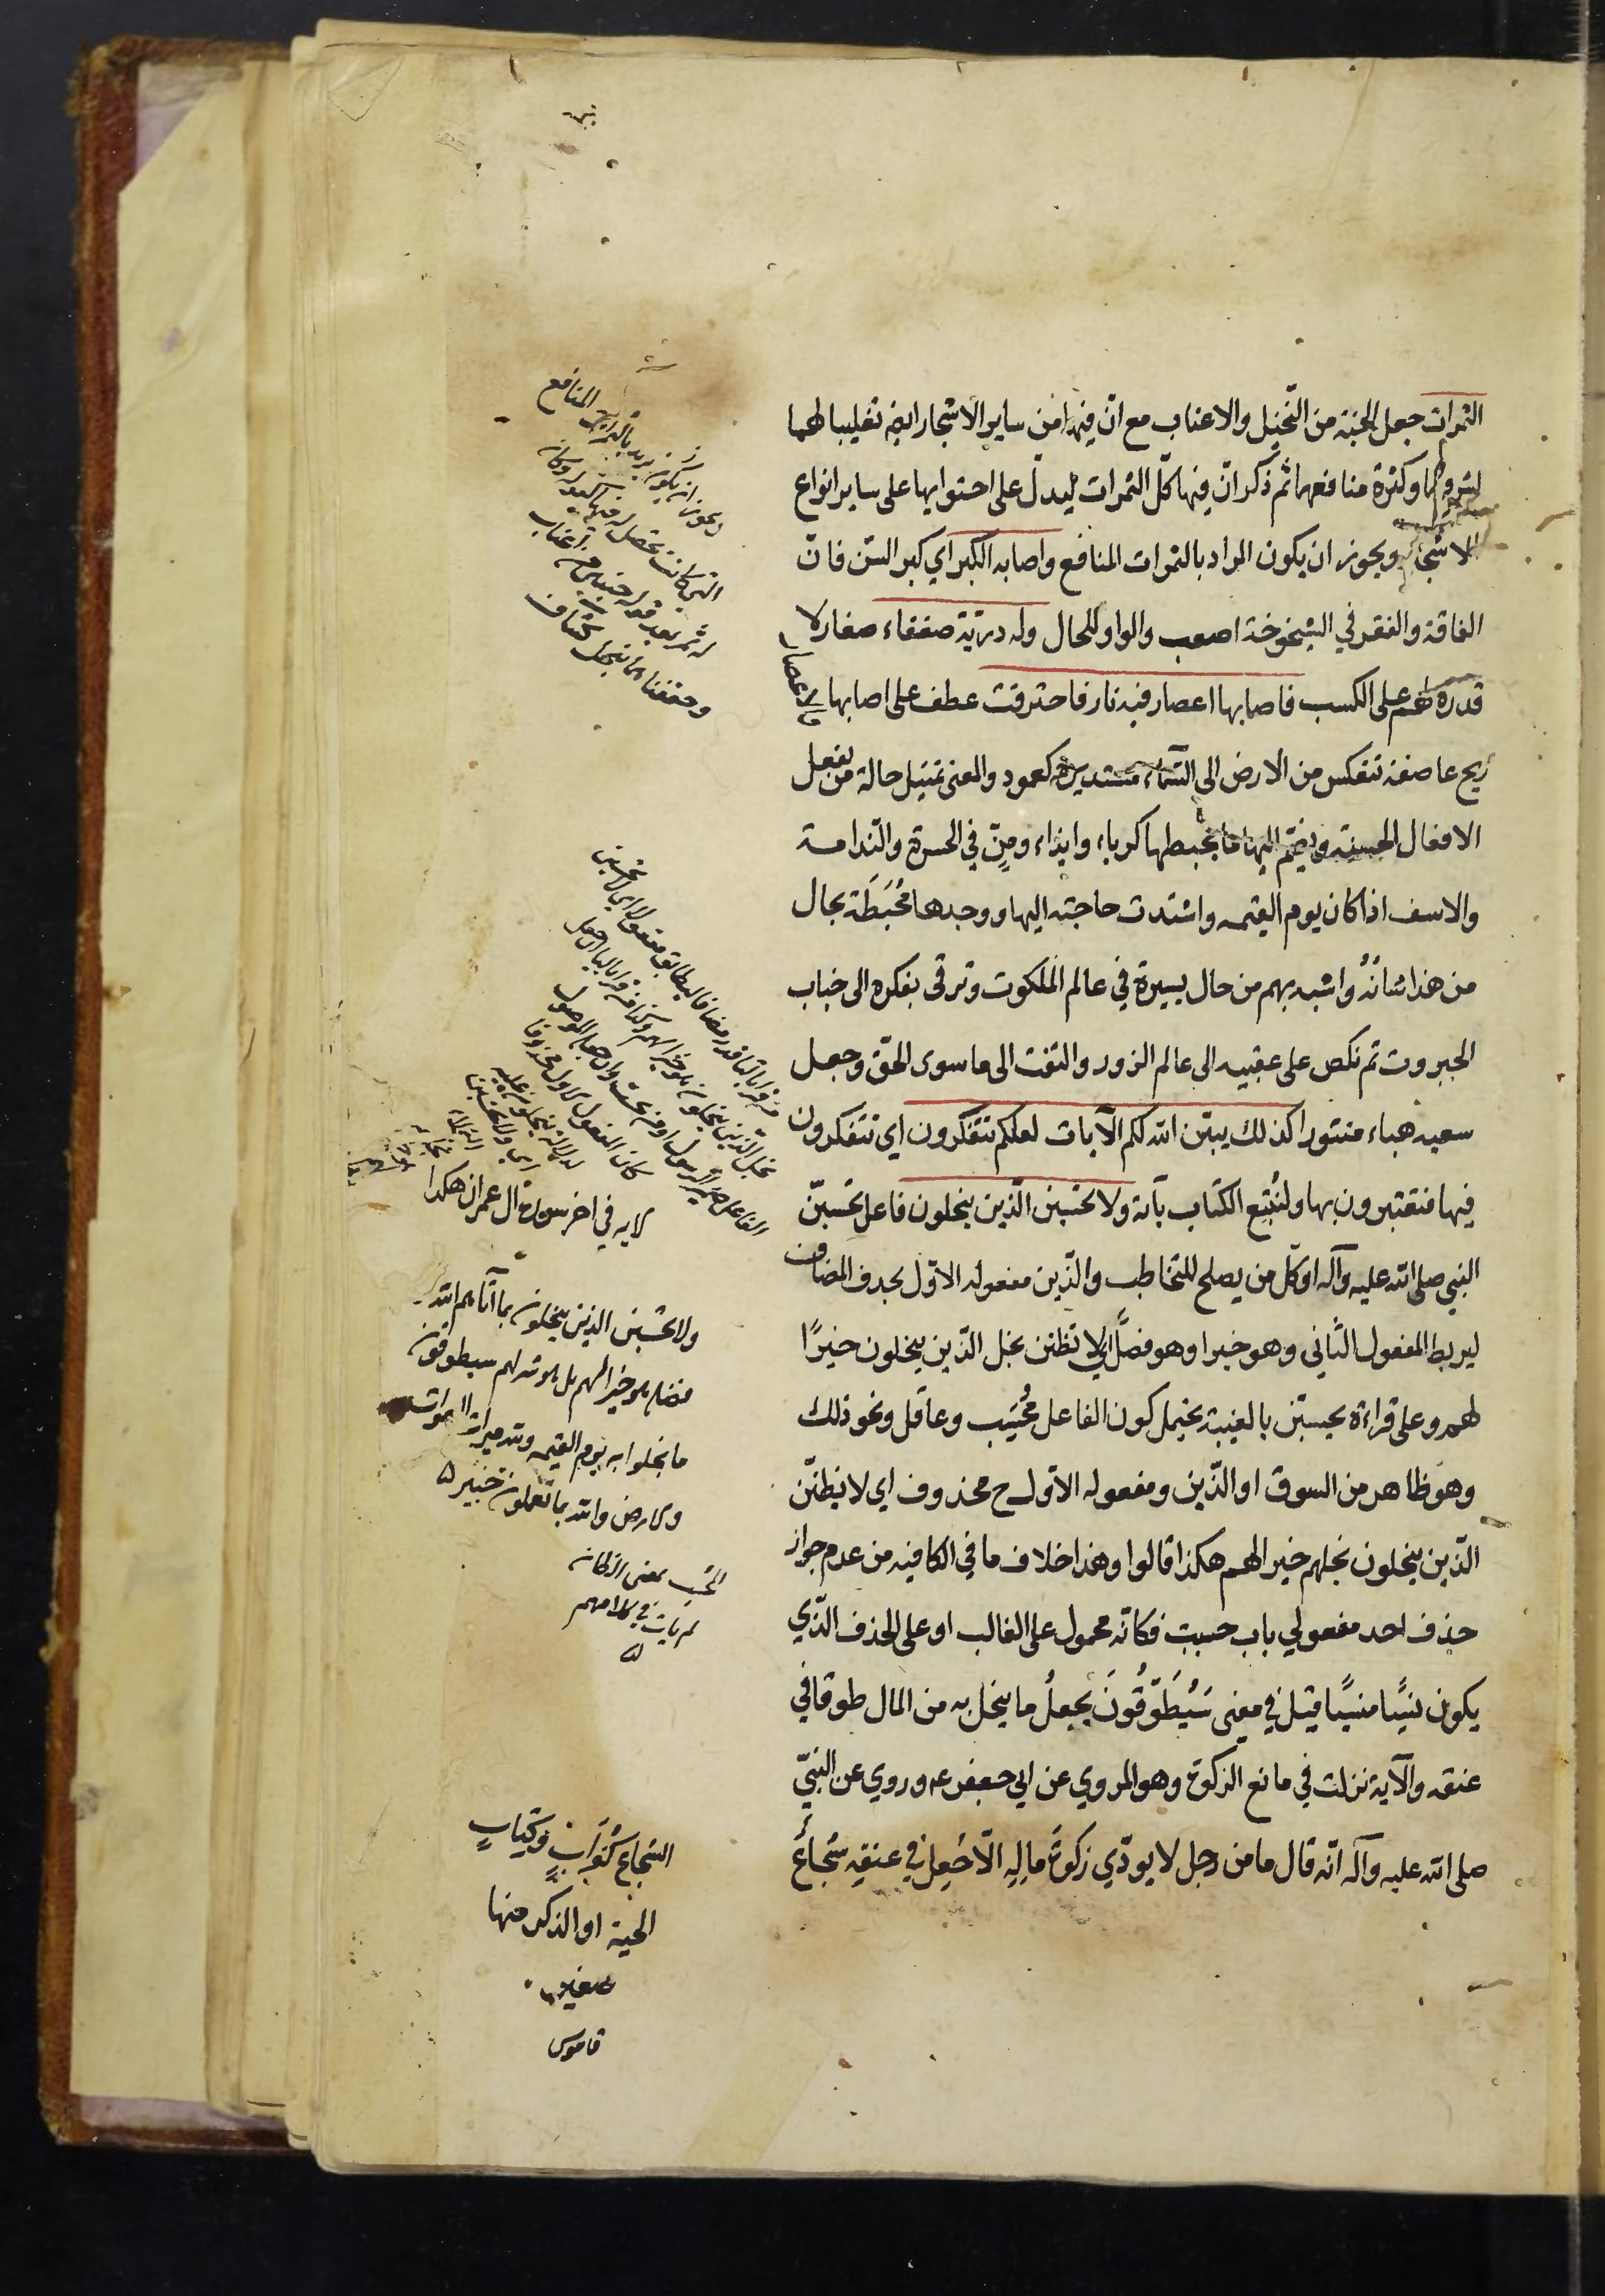 الثمرات جعل الجنة من النخيل والاعناب مع انّ فيها من ساير الاشجار ايضا تغليبا لهما
لشرفهما وكثرة منافعهما ثم ذكر انّ فيها كلّ الثمرات ليدلّ على احتوايها على ساير انواع
الاشجار ويجوز ان يكون المراد بالثمرات المنافع واصابه الكبر اي كبر السّن فانّ
الفاقة والفقر في الشيخوخة اصعب والواو للحال وله ذرّيّة ضعفاء صغار لا
قدرة لهم على الكسب فاصابها اعصار فيه نار فاحترقت عطف على اصابها والاعصار
ريح عاصفة تنعكس من الارض الى السّماء مستديرة كعمود والمعنى تمثيل حالة من يفعل
الافعال الحسنة ويضمّ اليها ما يحبطها كرياء وايذاء ومنّ في الحسرة والنّدامة
والاسف اذا كان يوم القيمه واشتدت حاجته اليها ووجدها محُبَطَة بحال
من هذا شانُهُ واشبه بهم من حال بسيره في عالم الملكوت وترقى بفكره الى جناب
الجبروت ثم نكص على عقبيه الى عالم الزور والتفت الى ما سوى الحقّ وجعل
سعيه هباء منثورا كذلك يبيّن الله لكم الآيات لعلكم تتفكّرون اي تتفكرون
فيها فتعتبرون بها ولنُتبِع الكتاب بآية ولا تحسبنّ الّذين يبخلون فاعل تحسبنّ
النبي صلى الله عليه وآله او كلّ من يصلح للتخاطب والّذين مفعوله الاوّل بحذف المضاف
ليربط المفعول الثّاني وهو خيرا وهو فصل اي لا تظننّ بخل الّذين يبخلون خيرًا
لهم وعلى قراءة يحسبنّ بالغيبة يحتمل كون الفاعل مُحْسِب وعاقل ونحو ذلك
وهو ظاهر من السوق او الّذين ومفعوله الاوّل ح محذوف اي لا يظنّنّ
الّذين يبخلون بخلهم خيرا لهم هكذا قالوا وهذا خلاف ما في الكافيه من عدم جواز
حذف احد مفعولي باب حسبت فكانّه محمول على الغالب او على الحذف الّذي
يكون نسيًا منسيًا قيل في معنى سَيُطَوَّقُونَ يجعلُ ما بخل به من المال طوقا في
عنقه والآية نزلت في مانع الزكوة وهو المروي عن ابي جعفر عه وروي عن النبيّ
صلى الله عليه وآله انّه قال ما من رجل لا يودّي زكوةَ مالِهِ الّا جُعِل في عنقِهِ شُجاعٌ
ويجوز ان يكون يريد بالثمرات المنافع
التي كانت تحصل له فيها
له ثمر بعد قوله جنتين من اعناب
وحففناهما بنخل كشاف
لايه في اخر سورة آل عمران هكذا
ولا تحسبنّ الذين يبخلون بما آتاهم الله من
فضله هو خيرا لهم بل هو شر لهم سيطوقون
ما بخلوا به يوم القيمه ولله ميراث السموات
والارض والله بما تعملون خبير
بمعنى
لم يات في كلامهم
الشجاع كغُرَابٍ وكِتَابٍ
الحية او الذكر منها
صغيره
قاموس